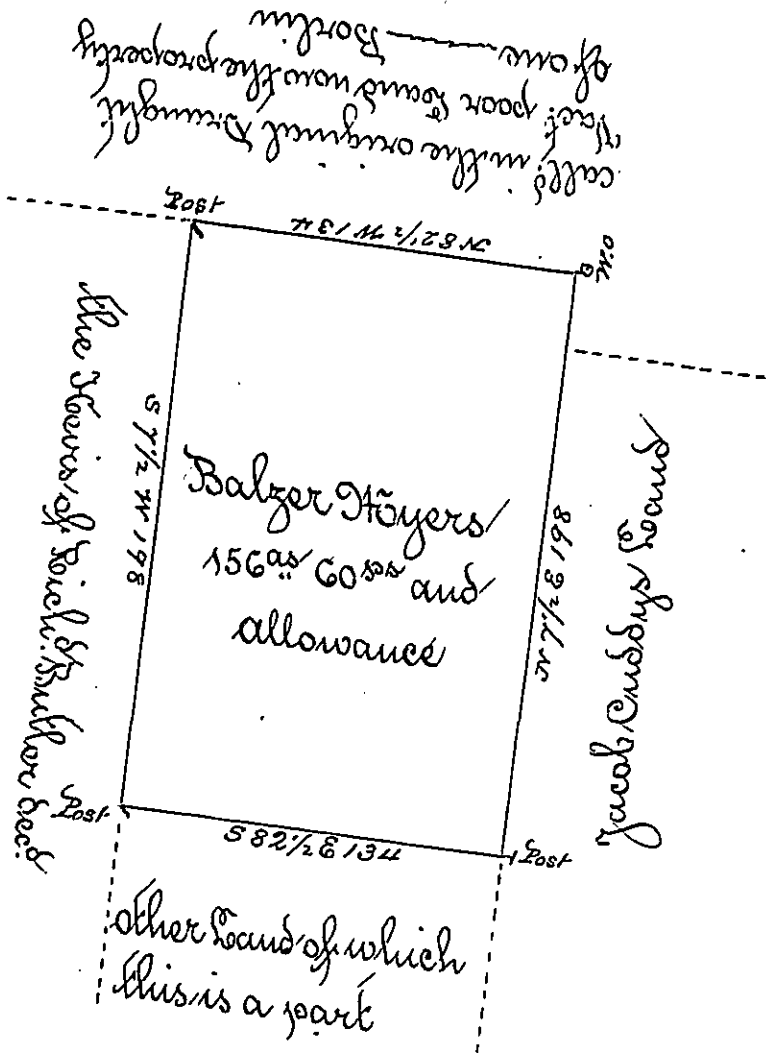 call'd in the original Draught
Vact. poor Land now the property
of one ——— Borlin
Post
N 82 1/2 W 134
W.O
the Heirs of Rich.d Butler Dec.d
S 7 1/2 W 198
Balzer Möyers
156 as 60 ps and
allowance
N 7 1/2 E 198
Jacob Cuddys Land
Post
S 82 1/2 E 134
Post
other Land of which
this is a part